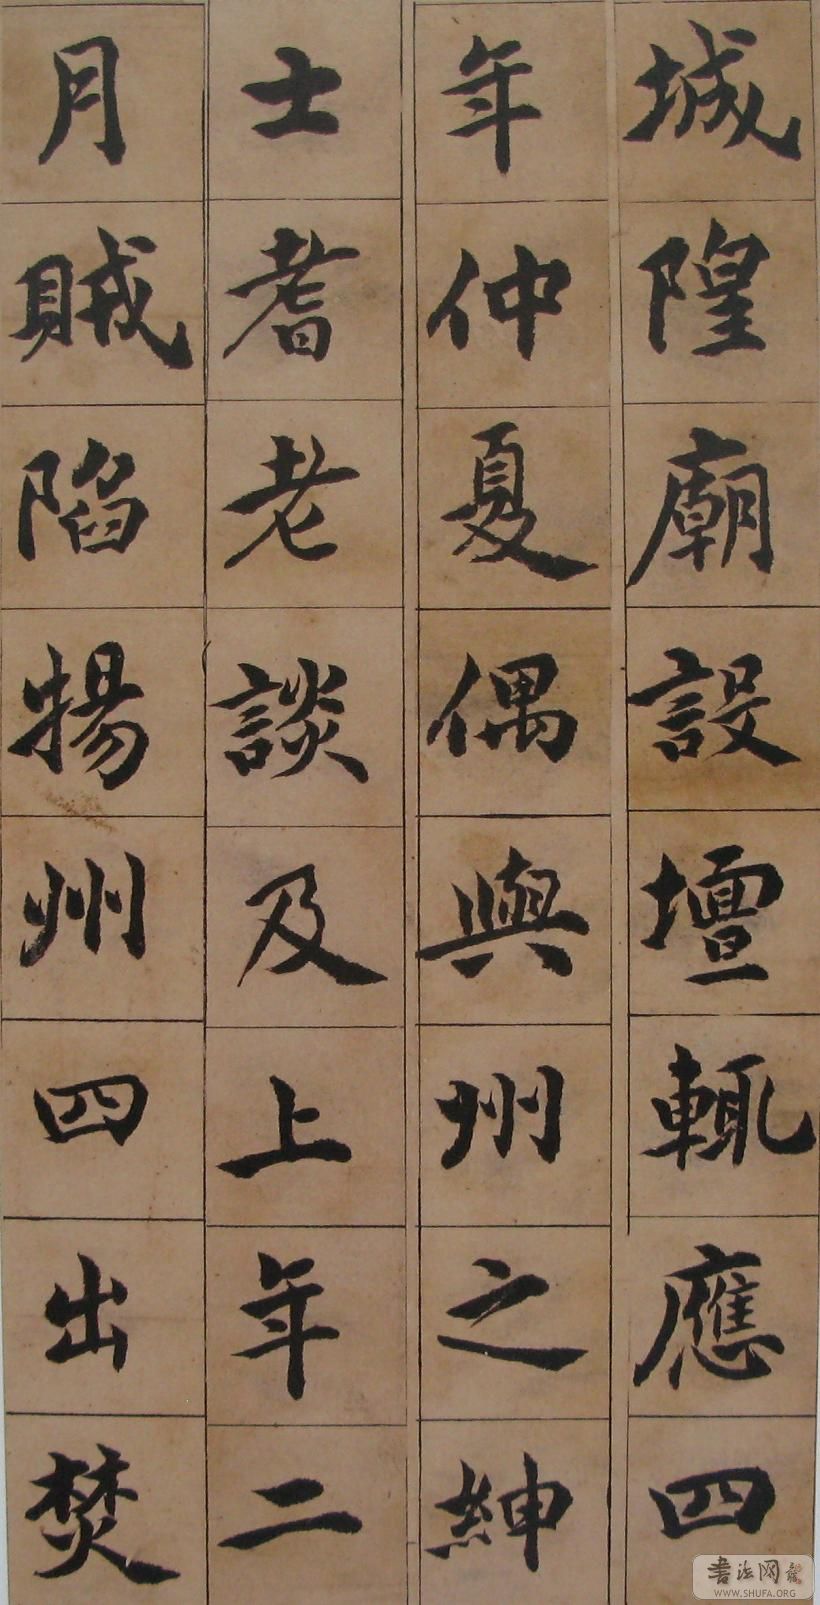 城隍廟設壇輒應四
年仲夏偶與州之紳
士耆老談及上年二
月賊陷揚州四出焚
書法网
WWW.SHUFA.ORG